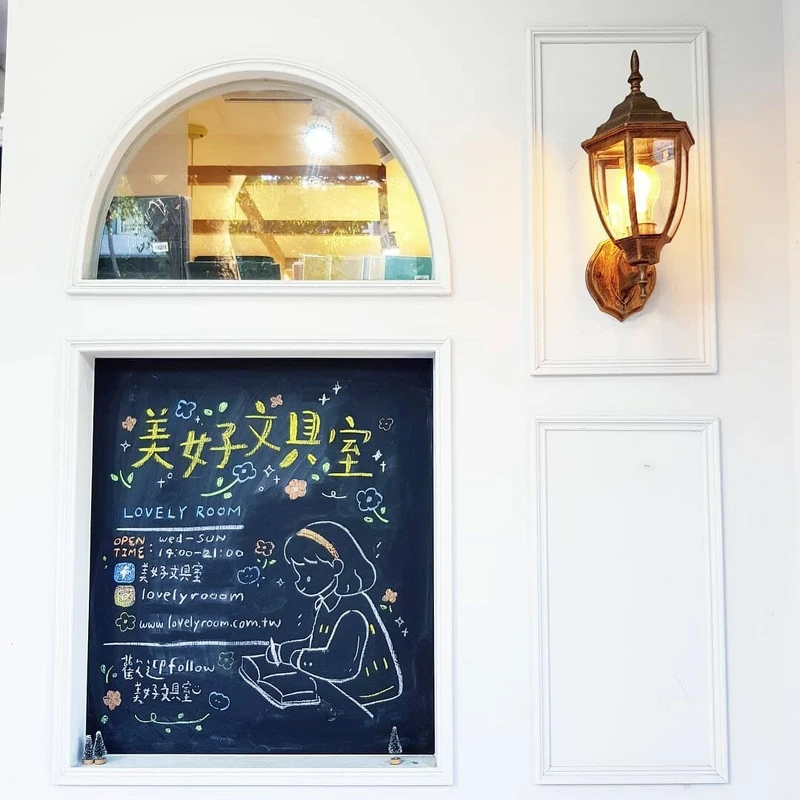 美好文具室
LOVELY ROOM
OPEN TIME: wed-SUN
14:00-21:00
美好文具室
lovelyrooom
www.lovelyroom.com.tw
歡迎follow
美好文具室